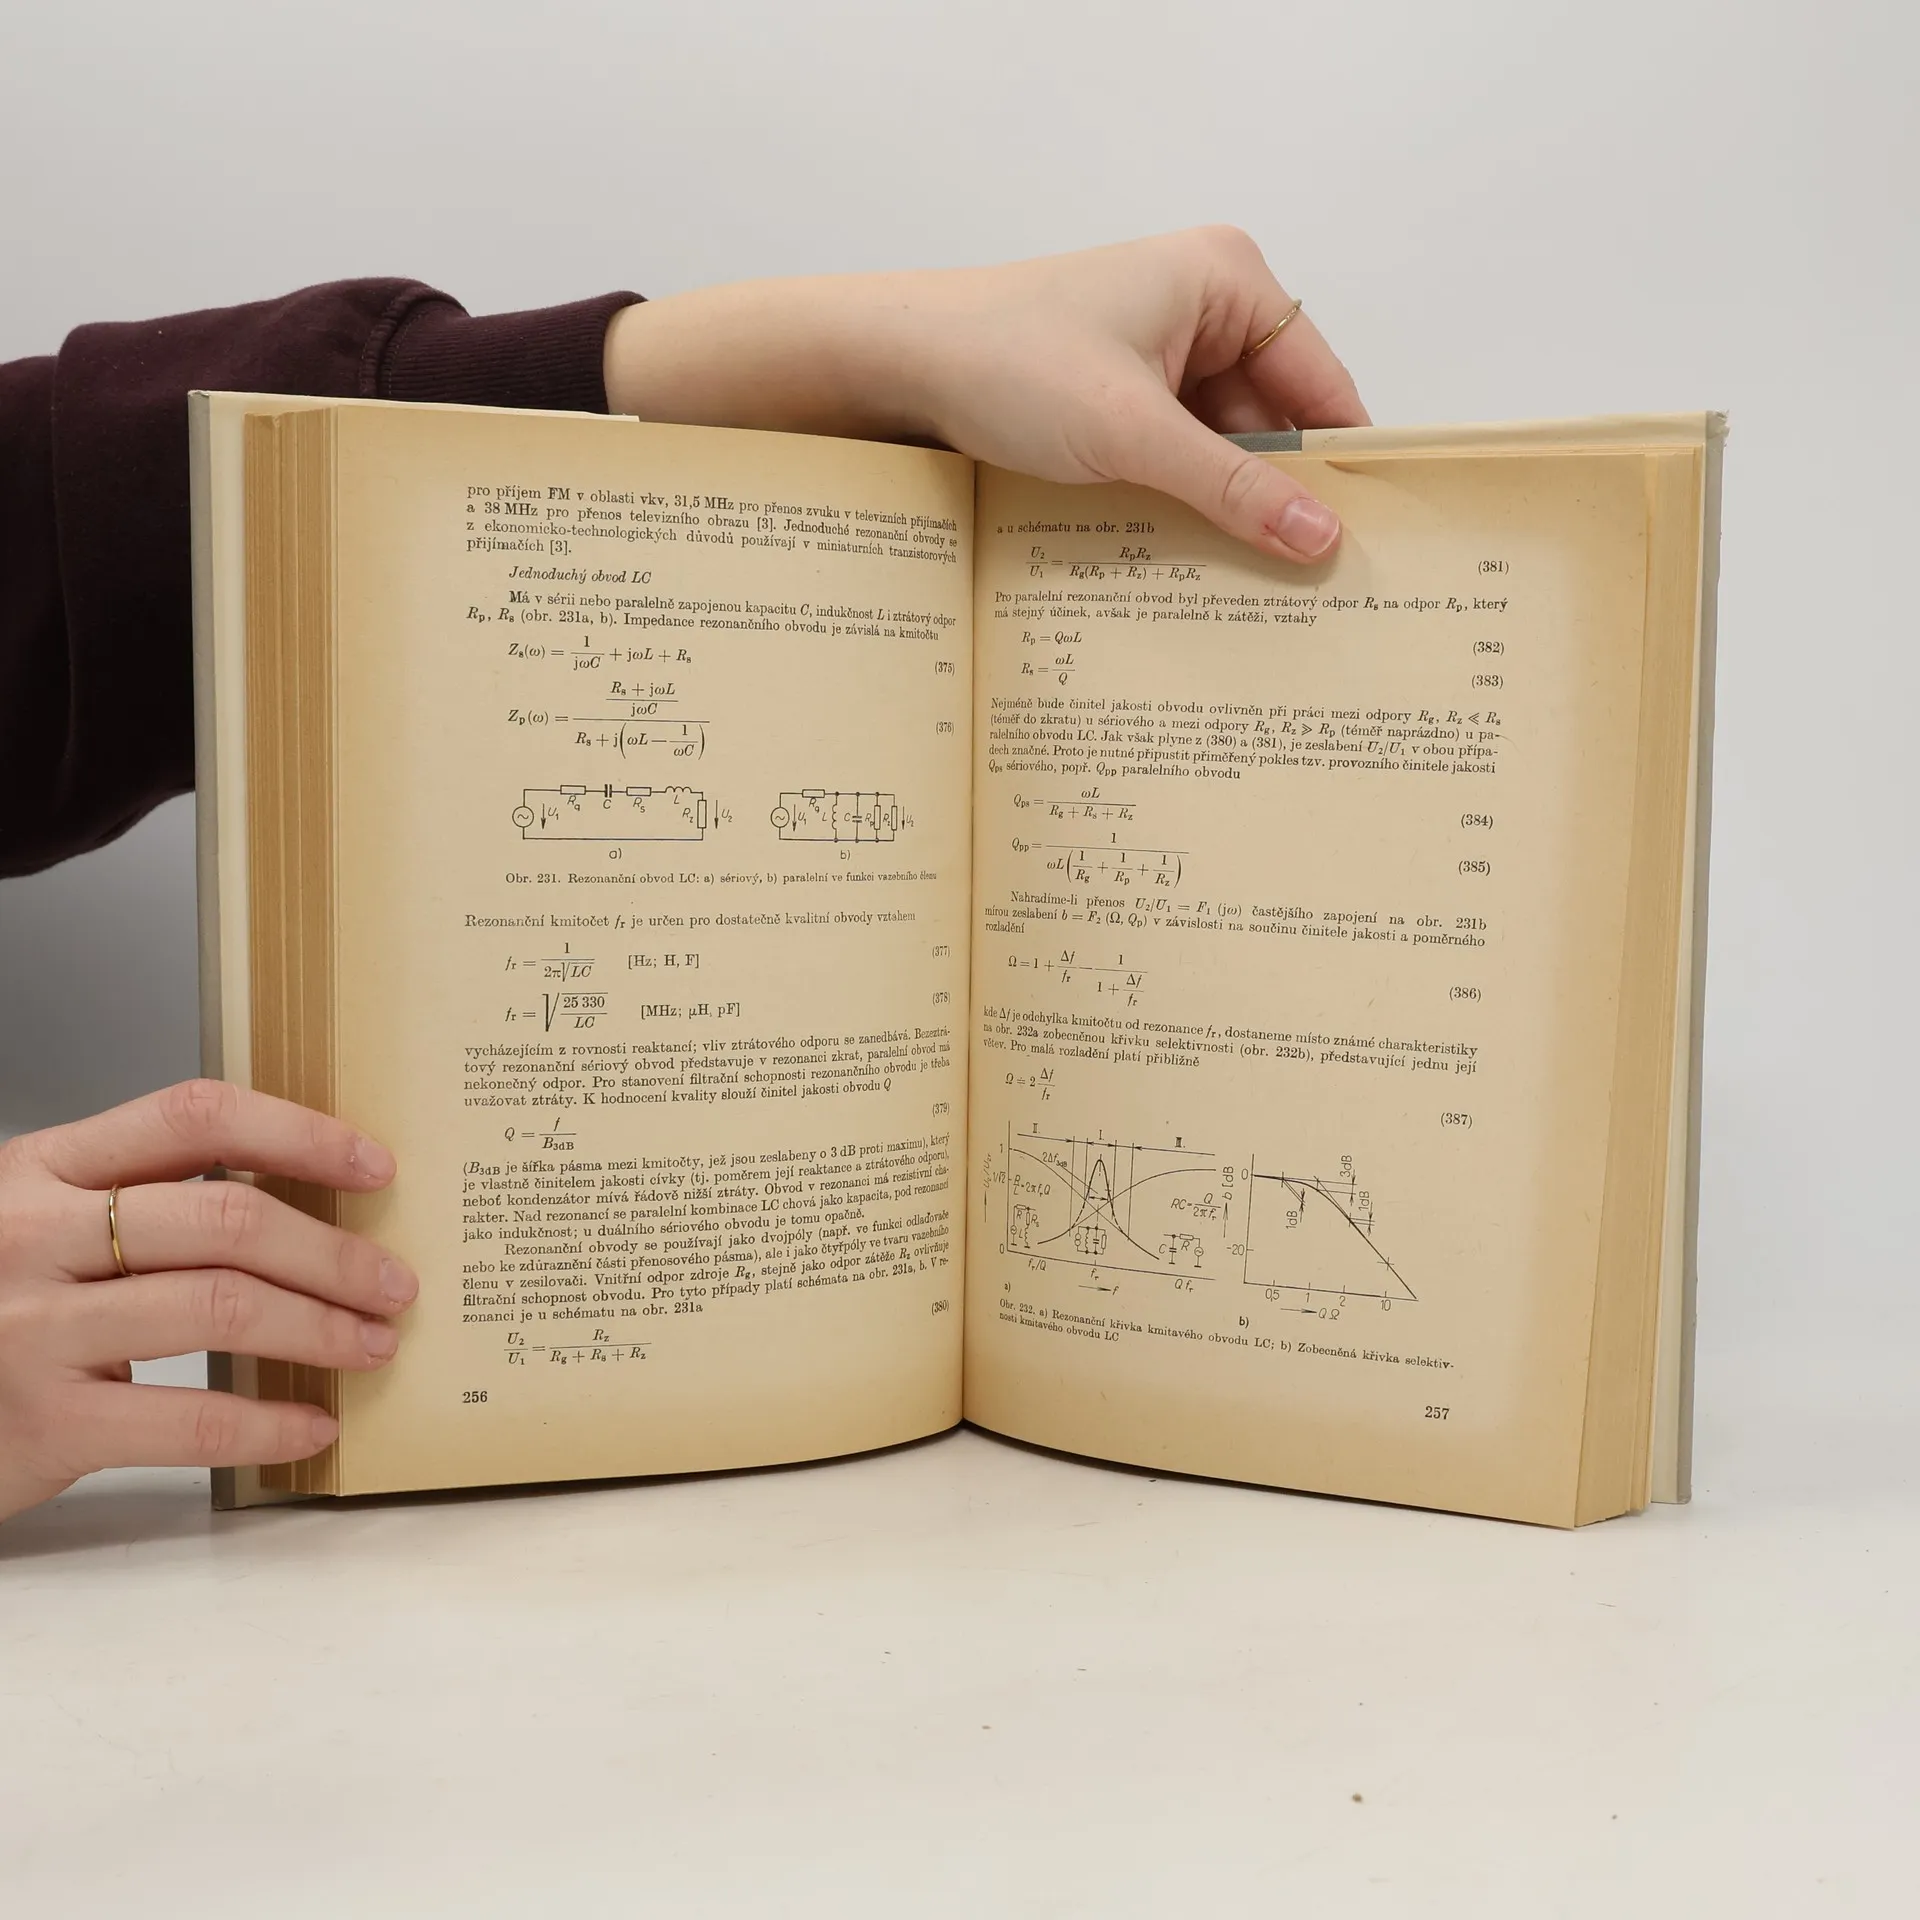 pro příjem FM v oblasti vkv, 31,5 MHz pro přenos zvuku v televizních přijímačích
a 38 MHz pro přenos televizního obrazu [3]. Jednoduché rezonanční obvody se
z ekonomicko-technologických důvodů používají v miniaturních tranzistorových
přijímačích [3].
Jednoduchý obvod LC
Má v sérii nebo paralelně zapojenou kapacitu C, indukčnost L i ztrátový odpor
Rp, Rs (obr. 231a, b). Impedance rezonančního obvodu je závislá na kmitočtu
Zs(ω) = 1/jωC + jωL + Rs (375)
Zp(ω) = ((Rs + jωL)/jωC) / (Rs + j(ωL − 1/ωC)) (376)
U1 Rg C Rs L Rz U2
U1 Rg L C Rp Rz U2
a) b)
Obr. 231. Rezonanční obvod LC: a) sériový, b) paralelní ve funkci vazebního členu
Rezonanční kmitočet fr je určen pro dostatečně kvalitní obvody vztahem
fr = 1/(2π√LC) [Hz; H, F] (377)
fr = √(25 330/LC) [MHz; μH, pF] (378)
vycházejícím z rovnosti reaktancí; vliv ztrátového odporu se zanedbává. Bezeztrá-
tový rezonanční sériový obvod představuje v rezonanci zkrat, paralelní obvod má
nekonečný odpor. Pro stanovení filtrační schopnosti rezonančního obvodu je třeba
uvažovat ztráty. K hodnocení kvality slouží činitel jakosti obvodu Q
Q = f/B3dB (379)
(B3dB je šířka pásma mezi kmitočty, jež jsou zeslabeny o 3 dB proti maximu), který
je vlastně činitelem jakosti cívky (tj. poměrem její reaktance a ztrátového odporu),
neboť kondenzátor mívá řádově nižší ztráty. Obvod v rezonanci má rezistivní cha-
rakter. Nad rezonancí se paralelní kombinace LC chová jako kapacita, pod rezonancí
jako indukčnost; u duálního sériového obvodu je tomu opačně.
Rezonanční obvody se používají jako dvojpóly (např. ve funkci odlaďovače
nebo ke zdůraznění části přenosového pásma), ale i jako čtyřpóly ve tvaru vazebního
členu v zesilovači. Vnitřní odpor zdroje Rg, stejně jako odpor zátěže Rz ovlivňuje
filtrační schopnost obvodu. Pro tyto případy platí schémata na obr. 231a, b. V re-
zonanci je u schématu na obr. 231a
U2/U1 = Rz/(Rg + Rs + Rz) (380)
256
a u schématu na obr. 231b
U2/U1 = RpRz/(Rg(Rp + Rz) + RpRz) (381)
Pro paralelní rezonanční obvod byl převeden ztrátový odpor Rs na odpor Rp, který
má stejný účinek, avšak je paralelně k zátěži, vztahy
Rp = QωL (382)
Rs = ωL/Q (383)
Nejméně bude činitel jakosti obvodu ovlivněn při práci mezi odpory Rg, Rz ≪ Rs
(téměř do zkratu) u sériového a mezi odpory Rg, Rz ≫ Rp (téměř naprázdno) u pa-
ralelního obvodu LC. Jak však plyne z (380) a (381), je zeslabení U2/U1 v obou přípa-
dech značné. Proto je nutné připustit přiměřený pokles tzv. provozního činitele jakosti
Qps sériového, popř. Qpp paralelního obvodu
Qps = ωL/(Rg + Rs + Rz) (384)
Qpp = 1/(ωL(1/Rg + 1/Rp + 1/Rz)) (385)
Nahradíme-li přenos U2/U1 = F1 (jω) častějšího zapojení na obr. 231b
mírou zeslabení b = F2 (Ω, Qp) v závislosti na součinu činitele jakosti a poměrného
rozladění
Ω = 1 + Δf/fr − 1/(1 + Δf/fr) (386)
kde Δf je odchylka kmitočtu od rezonance fr, dostaneme místo známé charakteristiky
na obr. 232a zobecněnou křivku selektivnosti (obr. 232b), představující jednu její
větev. Pro malá rozladění platí přibližně
Ω = 2 Δf/fr (387)
II. I. III.
1 2Δf3dB
1/√2 R/L=2πfrQ RC=Q/2πfr
R Rs L C R
0 fr/Q fr f Q fr
a)
b [dB] 0 -20
3dB 1dB 1dB
0,5 1 2 10
Q Ω
b)
Obr. 232. a) Rezonanční křivka kmitavého obvodu LC; b) Zobecněná křivka selektiv-
nosti kmitavého obvodu LC
257